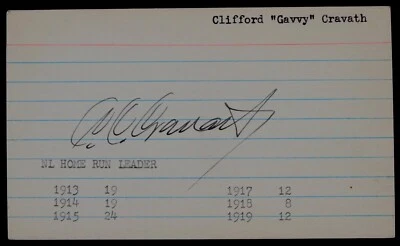 Clifford "Gavvy" Cravath
C. C. Cravath
NL HOME RUN LEADER
1913 19 1917 12
1914 19 1918 8
1915 24 1919 12